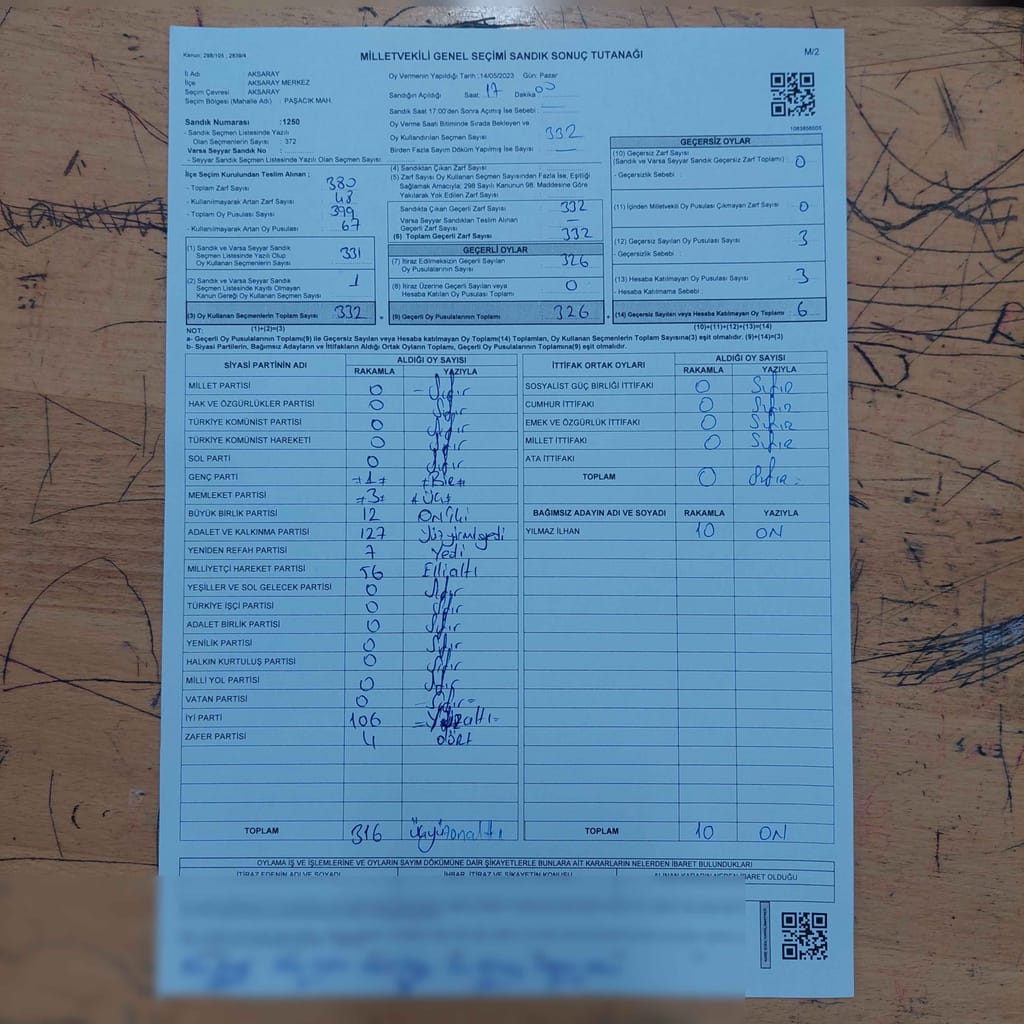 Kanun: 298/105 , 2839/4
MİLLETVEKİLİ GENEL SEÇİMİ SANDIK SONUÇ TUTANAĞI
M/2
İl Adı AKSARAY
İlçe AKSARAY MERKEZ
Seçim Çevresi AKSARAY
Seçim Bölgesi (Mahalle Adı) : PAŞACIK MAH.
Oy Vermenin Yapıldığı Tarih : 14/05/2023 Gün: Pazar
Sandığın Açıldığı Saat: 17 Dakika 00
Sandık Saat 17:00'den Sonra Açımış İse Sebebi :
Oy Verme Saati Bitiminde Sırada Bekleyen ve
Oy Kullandırılan Seçmen Sayısı : 332
Birden Fazla Sayım Döküm Yapılmış İse Sayısı :
Sandık Numarası : 1250
- Sandık Seçmen Listesinde Yazılı
Olan Seçmenlerin Sayısı : 372
Varsa Seyyar Sandık No :
- Seyyar Sandık Seçmen Listesinde Yazılı Olan Seçmen Sayısı:
İlçe Seçim Kurulundan Teslim Alınan ;
- Toplam Zarf Sayısı : 380
- Kullanılmayarak Artan Zarf Sayısı : 48
- Toplam Oy Pusulası Sayısı : 399
- Kullanılmayarak Artan Oy Pusulası : 67
(1) Sandık ve Varsa Seyyar Sandık
Seçmen Listesinde Yazılı Olup
Oy Kullanan Seçmenlerin Sayısı : 331
(2) Sandık ve Varsa Seyyar Sandık
Seçmen Listesinde Kayıtlı Olmayan
Kanun Gereği Oy Kullanan Seçmen Sayısı : 1
(3) Oy Kullanan Seçmenlerin Toplam Sayısı : 332
(4) Sandıktan Çıkan Zarf Sayısı :
(5) Zarf Sayısı Oy Kullanan Seçmen Sayısından Fazla İse, Eşitliği
Sağlamak Amacıyla; 298 Sayılı Kanunun 98. Maddesine Göre
Yakılarak Yok Edilen Zarf Sayısı :
Sandıkta Çıkan Geçerli Zarf Sayısı : 332
Varsa Seyyar Sandıktan Teslim Alınan
Geçerli Zarf Sayısı : —
(6) Toplam Geçerli Zarf Sayısı : 332
GEÇERLİ OYLAR
(7) İtiraz Edilmeksizin Geçerli Sayılan
Oy Pusulalarının Sayısı : 326
(8) İtiraz Üzerine Geçerli Sayılan veya
Hesaba Katılan Oy Pusulası Toplamı : 0
(9) Geçerli Oy Pusulalarının Toplamı : 326
1083856605
GEÇERSİZ OYLAR
(10) Geçersiz Zarf Sayısı
(Sandık ve Varsa Seyyar Sandık Geçersiz Zarf Toplamı) : 0
- Geçersizlik Sebebi :
(11) İçinden Milletvekili Oy Pusulası Çıkmayan Zarf Sayısı : 0
(12) Geçersiz Sayılan Oy Pusulası Sayısı : 3
- Geçersizlik Sebebi :
(13) Hesaba Katılmayan Oy Pusulası Sayısı : 3
- Hesaba Katılmama Sebebi :
(14) Geçersiz Sayılan veya Hesaba Katılmayan Oy Toplamı : 6
NOT: (1)+(2)=(3) (10)+(11)+(12)+(13)=(14)
a- Geçerli Oy Pusulalarının Toplamı(9) ile Geçersiz Sayılan veya Hesaba katılmayan Oy Toplamı(14) Toplamları, Oy Kullanan Seçmenlerin Toplam Sayısına(3) eşit olmalıdır. (9)+(14)=(3)
b- Siyasi Partilerin, Bağımsız Adayların ve İttifakların Aldığı Ortak Oyların Toplamı, Geçerli Oy Pusulalarının Toplamına(9) eşit olmalıdır.
SİYASİ PARTİNİN ADI ALDIĞI OY SAYISI
RAKAMLA YAZIYLA
MİLLET PARTİSİ 0 Sıfır
HAK VE ÖZGÜRLÜKLER PARTİSİ 0 Sıfır
TÜRKİYE KOMÜNİST PARTİSİ 0 Sıfır
TÜRKİYE KOMÜNİST HAREKETİ 0 Sıfır
SOL PARTİ 0 Sıfır
GENÇ PARTİ 1 Bir
MEMLEKET PARTİSİ 3 Üç
BÜYÜK BİRLİK PARTİSİ 12 ONİKİ
ADALET VE KALKINMA PARTİSİ 127 Yüzyirmiyedi
YENİDEN REFAH PARTİSİ 7 Yedi
MİLLİYETÇİ HAREKET PARTİSİ 56 Ellialtı
YEŞİLLER VE SOL GELECEK PARTİSİ 0 Sıfır
TÜRKİYE İŞÇİ PARTİSİ 0 Sıfır
ADALET BİRLİK PARTİSİ 0 Sıfır
YENİLİK PARTİSİ 0 Sıfır
HALKIN KURTULUŞ PARTİSİ 0 Sıfır
MİLLİ YOL PARTİSİ 0 Sıfır
VATAN PARTİSİ 0 Sıfır
İYİ PARTİ 106 =Yüzaltı=
ZAFER PARTİSİ 4 DÖRT
TOPLAM 316 Üçyüzonaltı
İTTİFAK ORTAK OYLARI ALDIĞI OY SAYISI
RAKAMLA YAZIYLA
SOSYALİST GÜÇ BİRLİĞİ İTTİFAKI 0 Sıfır
CUMHUR İTTİFAKI 0 Sıfır
EMEK VE ÖZGÜRLÜK İTTİFAKI 0 Sıfır
MİLLET İTTİFAKI 0 Sıfır
ATA İTTİFAKI
TOPLAM 0 Sıfır
BAĞIMSIZ ADAYIN ADI VE SOYADI RAKAMLA YAZIYLA
YILMAZ İLHAN 10 ON
TOPLAM 10 ON
OYLAMA İŞ VE İŞLEMLERİNE VE OYLARIN SAYIM DÖKÜMÜNE DAİR ŞİKAYETLERLE BUNLARA AİT KARARLARIN NELERDEN İBARET BULUNDUKLARI
İTİRAZ EDENİN ADI VE SOYADI İHBAR, İTİRAZ VE ŞİKAYETİN KONUSU ALINAN KARARIN NEDEN İBARET OLDUĞU